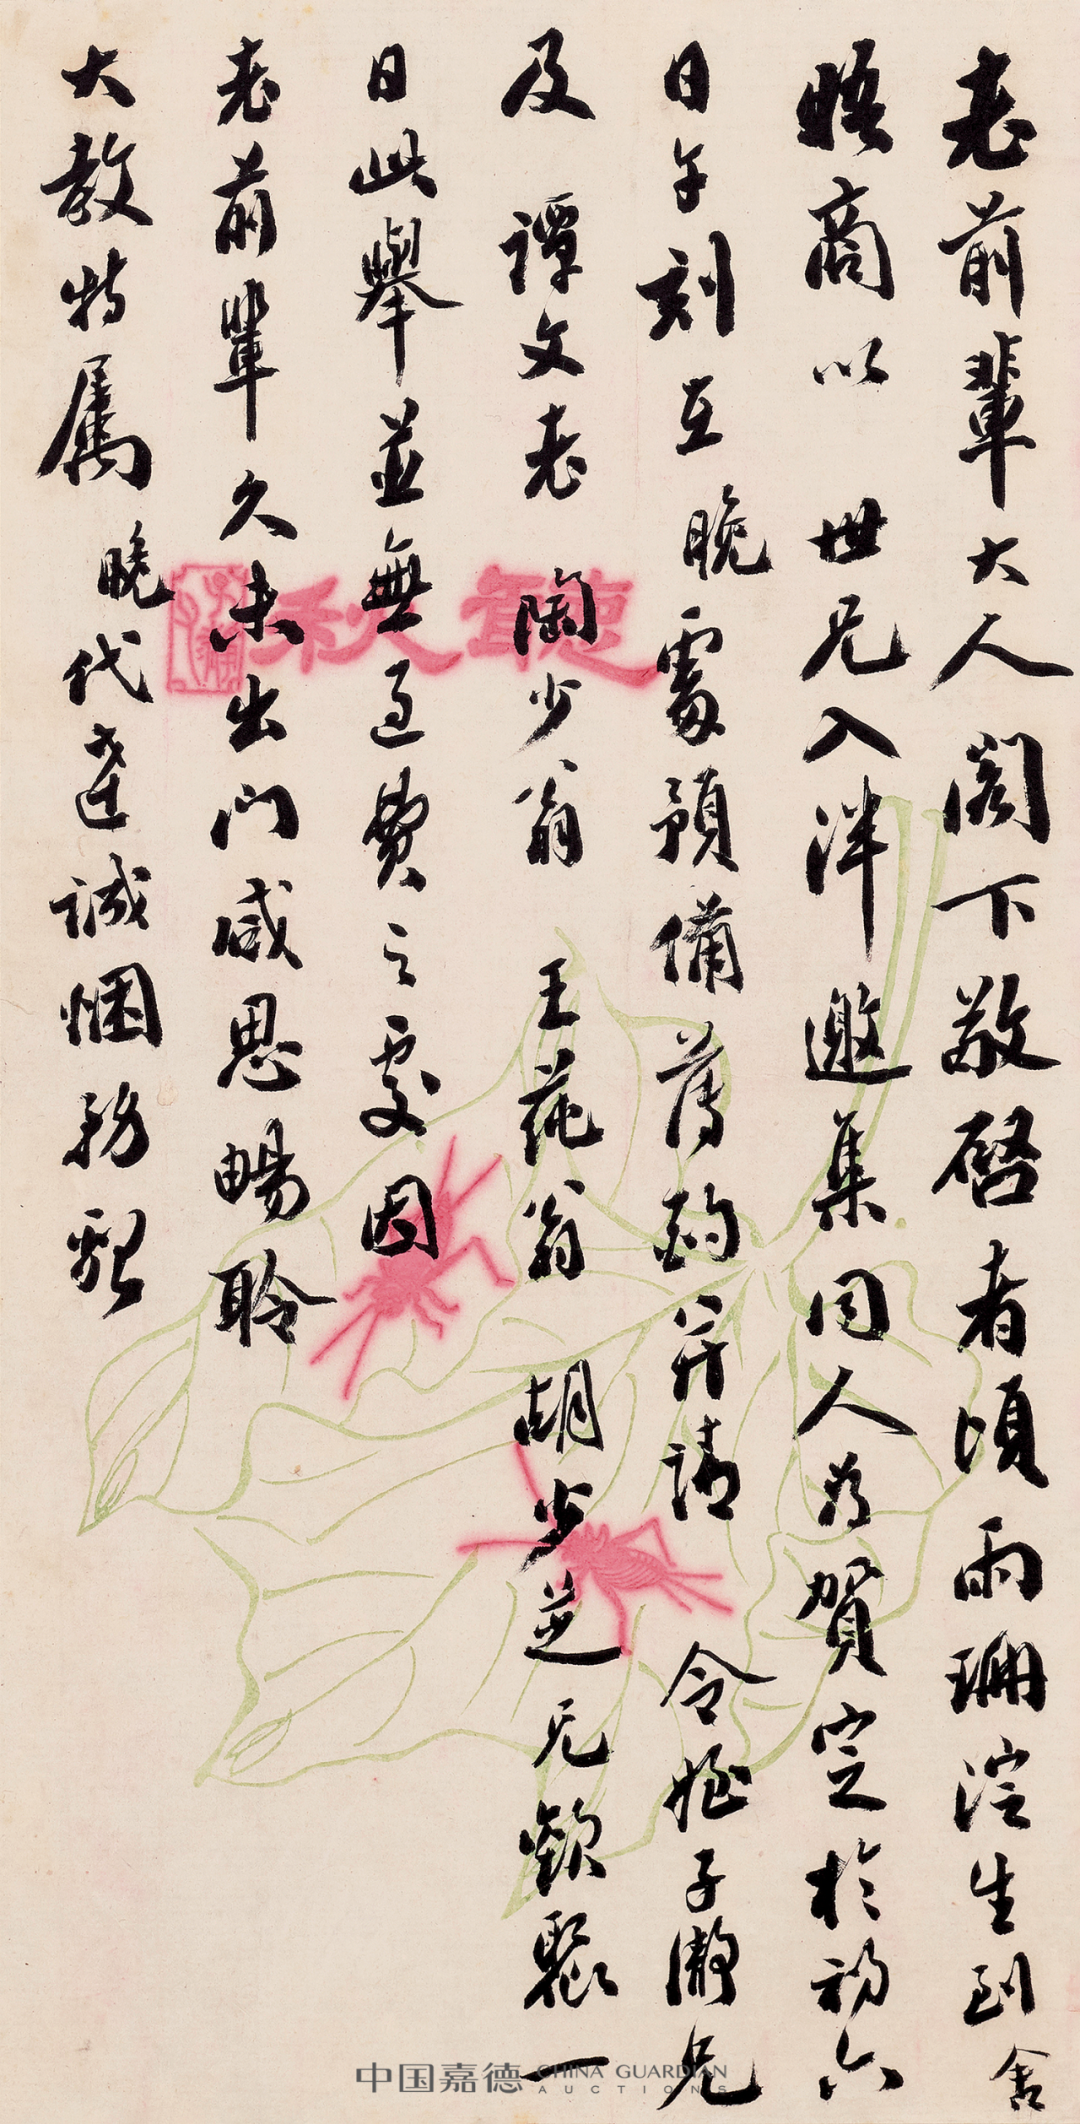 老前輩大人閣下敬啓者頃雨珊淀生到舍
晤商以 世兄入泮邀集同人為賀定於初六
日午刻在晚處預備薄酌并請 令姪子澂兄
及 譚文老 陶少翁 王蒓翁 胡少芝兄歡聚一
日此舉並無過費之處因
老前輩久未出門咸思暢聆
大教特屬晚代達誠悃務祈
聽秋
中国嘉德 CHINA GUARDIAN
AUCTIONS